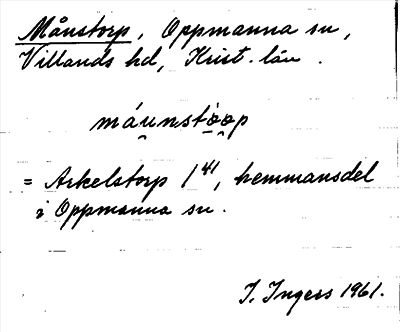 Månstorp, Oppmanna sn,
Villands hd, Krist. län.
máu̯nstò̤o̯p
= Arkelstorp 1⁴¹, hemmansdel
i Oppmanna sn.
I. Ingers 1961.